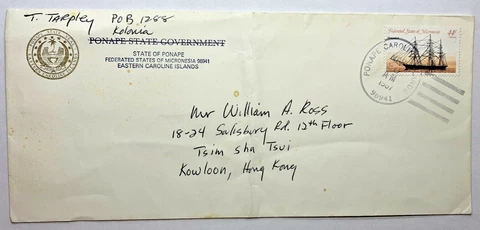 T. Tarpley P.O.B. 1288
Kolonia
PONAPE STATE GOVERNMENT
STATE OF PONAPE
FEDERATED STATES OF MICRONESIA 96941
EASTERN CAROLINE ISLANDS
Federated States of Micronesia 44
PONAPE CAROLINE
1987
96941
Mr William A. Ross
18-24 Salisbury Rd. 12th Floor
Tsim Sha Tsui
Kowloon, Hong Kong